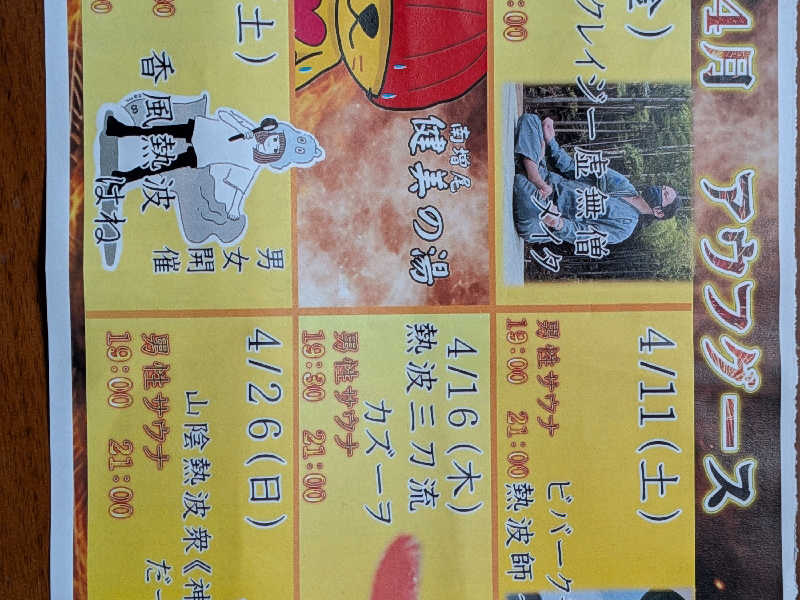 4月 アウフグース
金)
クレイジー虚無僧
メイタ
:00
4/11(土)
ビバーク
熱波師
男性サウナ
19:00 21:00
南増尾
健美の湯
4/16(木)
熱波三刀流
カズーヲ
男性サウナ
19:30 21:00
土)
男女
開催
香風熱波
はね
4/26(日)
山陰熱波衆《神
だー
男性サウナ
19:00 21:00